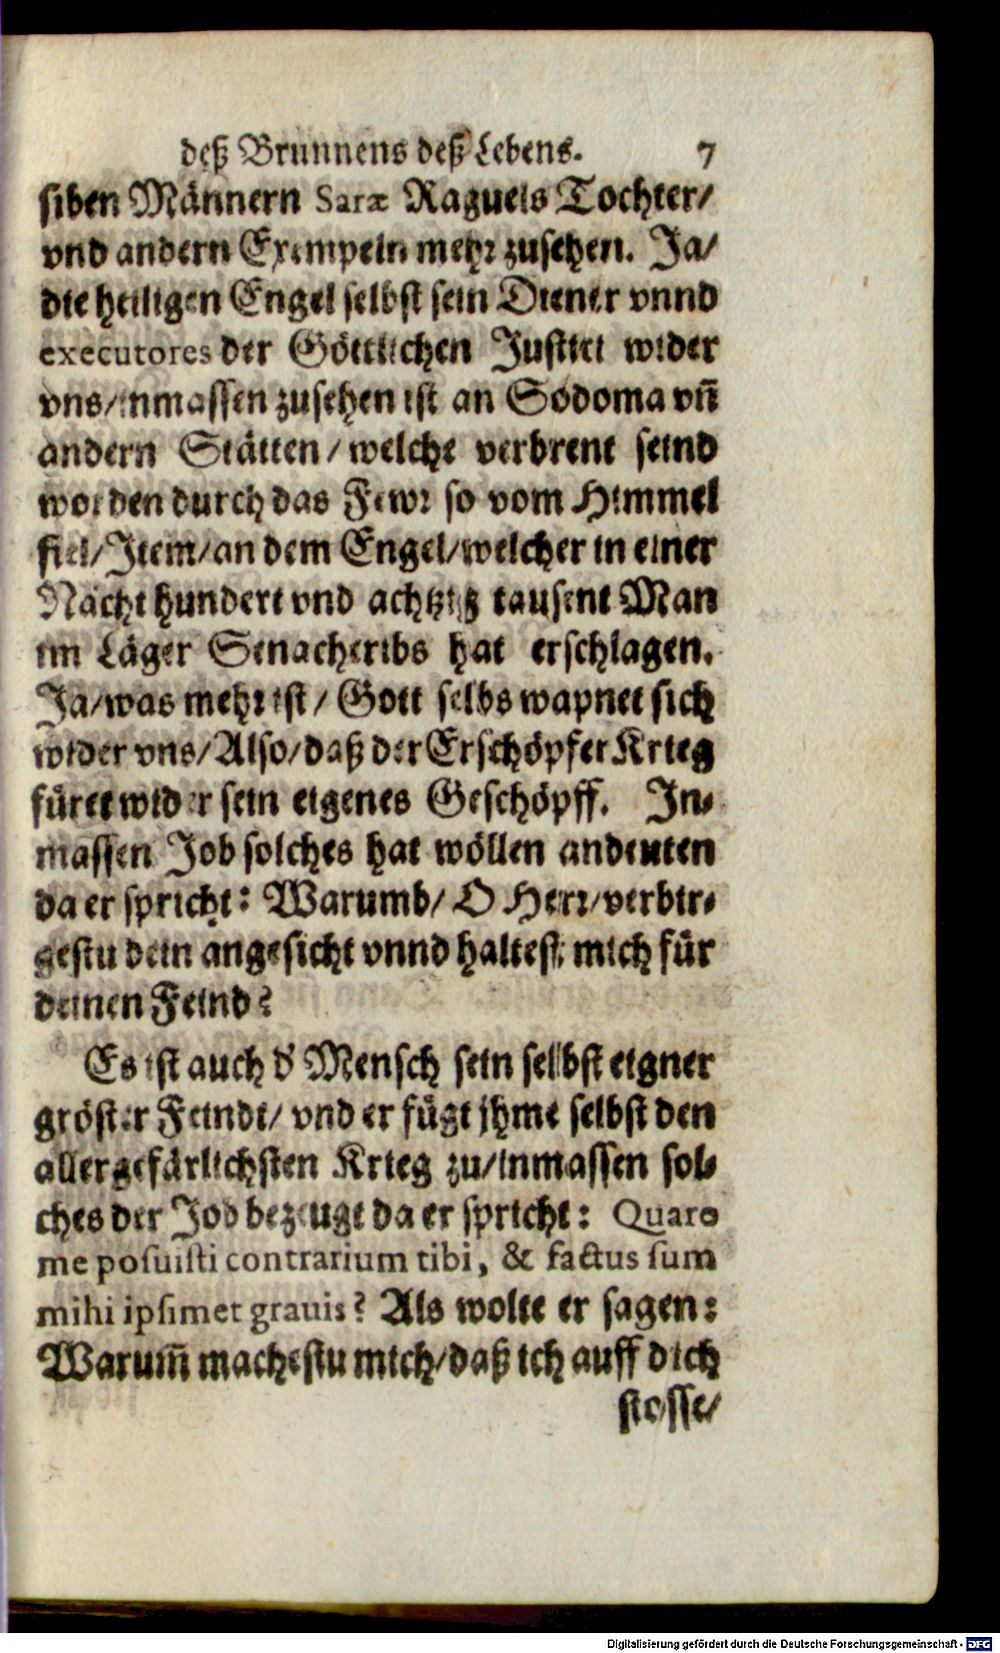 deß Brunnens deß Lebens. 7
siben Männern Saræ Raguels Tochter/
vnd andern Exempeln mehr zusehen. Ja/
die heiligen Engel selbst sein Diener vnnd
executores der Göttlichen Justici wider
vns/inmassen zusehen ist an Sodoma vñ
andern Stätten/welche verbrent seind
worden durch das Fewr so vom Himmel
fiel/Item/an dem Engel/welcher in einer
Nacht hundert vnd achtzig tausent Man
im Läger Senacheribs hat erschlagen.
Ja/was mehr ist/Gott selbs wapnet sich
wider vns/Also/daß der Erschöpfer Krieg
füret wider sein eigenes Geschöpff. In-
massen Job solches hat wöllen andeuten
da er spricht: Warumb/O Herr/verbir-
gestu dein angesicht vnnd haltest mich für
deinen Feind?
Es ist auch d' Mensch sein selbst eigner
gröster Feindt/vnd er fügt jhme selbst den
allergefärlichsten Krieg zu/inmassen sol-
ches der Job bezeugt da er spricht: Quare
me posuisti contrarium tibi, & factus sum
mihi ipsimet grauis? Als wolte er sagen:
Warum̃ machestu mich/daß ich auff dich
stosse/
Digitalisierung gefördert durch die Deutsche Forschungsgemeinschaft - DFG